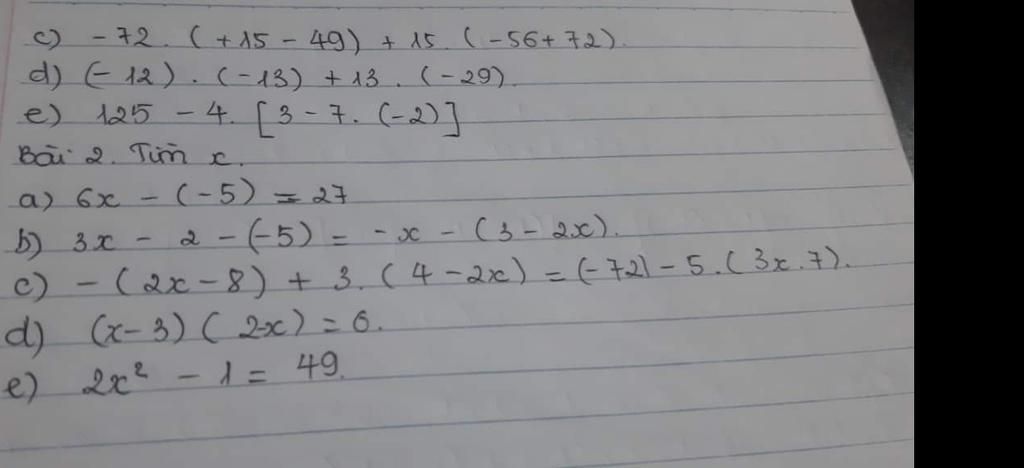 c) -72. (+15 - 49) + 15. (-56+72).
d) (-12). (-13) + 13. (-29)
e) 125 - 4. [3 - 7. (-2)]
Bài 2. Tìm x.
a) 6x - (-5) = 27
b) 3x - 2 - (-5) = -x - (3 - 2x).
c) -(2x - 8) + 3. (4 - 2x) = (-72) - 5. (3x.7).
d) (x-3) (2-x) = 0.
e) 2x² - 1 = 49.